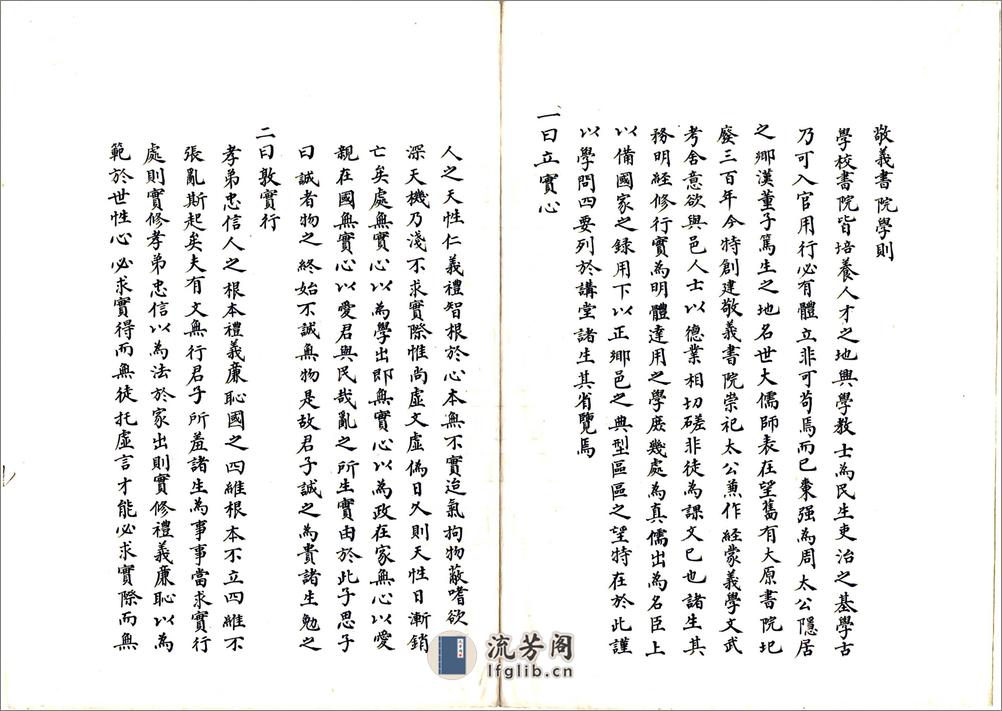 敬義書院學則
學校書院皆培養人才之地興學教士為民生吏治之基學古
乃可入官用行必有體立非可苟焉而已棗强為周太公隱居
之鄉漢董子篤生之地名世大儒師表在望舊有大原書院圮
廢三百年今特創建敬義書院崇祀太公兼作經蒙義學文武
考舍意欲與邑人士以德業相切磋非徒為課文已也諸生其
務明經修行實為明體達用之學庶幾處為真儒出為名臣上
以備國家之錄用下以正鄉邑之典型區區之望特在於此謹
以學問四要列於講堂諸生其省覽焉
一曰立實心
人之天性仁義禮智根於心本無不實迨氣拘物蔽嗜欲
深天機乃淺不求實際惟尚虛文虛偽日久則天性日漸銷
亡矣處無實心以為學出即無實心以為政在家無心以愛
親在國無實心以愛君與民哉亂之所生實由於此子思子
曰誠者物之終始不誠無物是故君子誠之為貴諸生勉之
二曰敦實行
孝弟忠信人之根本禮義廉恥國之四維根本不立四維不
張亂斯起矣夫有文無行君子所羞諸生為事事當求實行
處則實修孝弟忠信以為法於家出則實修禮義廉恥以為
範於世性心必求實得而無徒托虛言才能必求實際而無
流芳阁
lfglib.cn